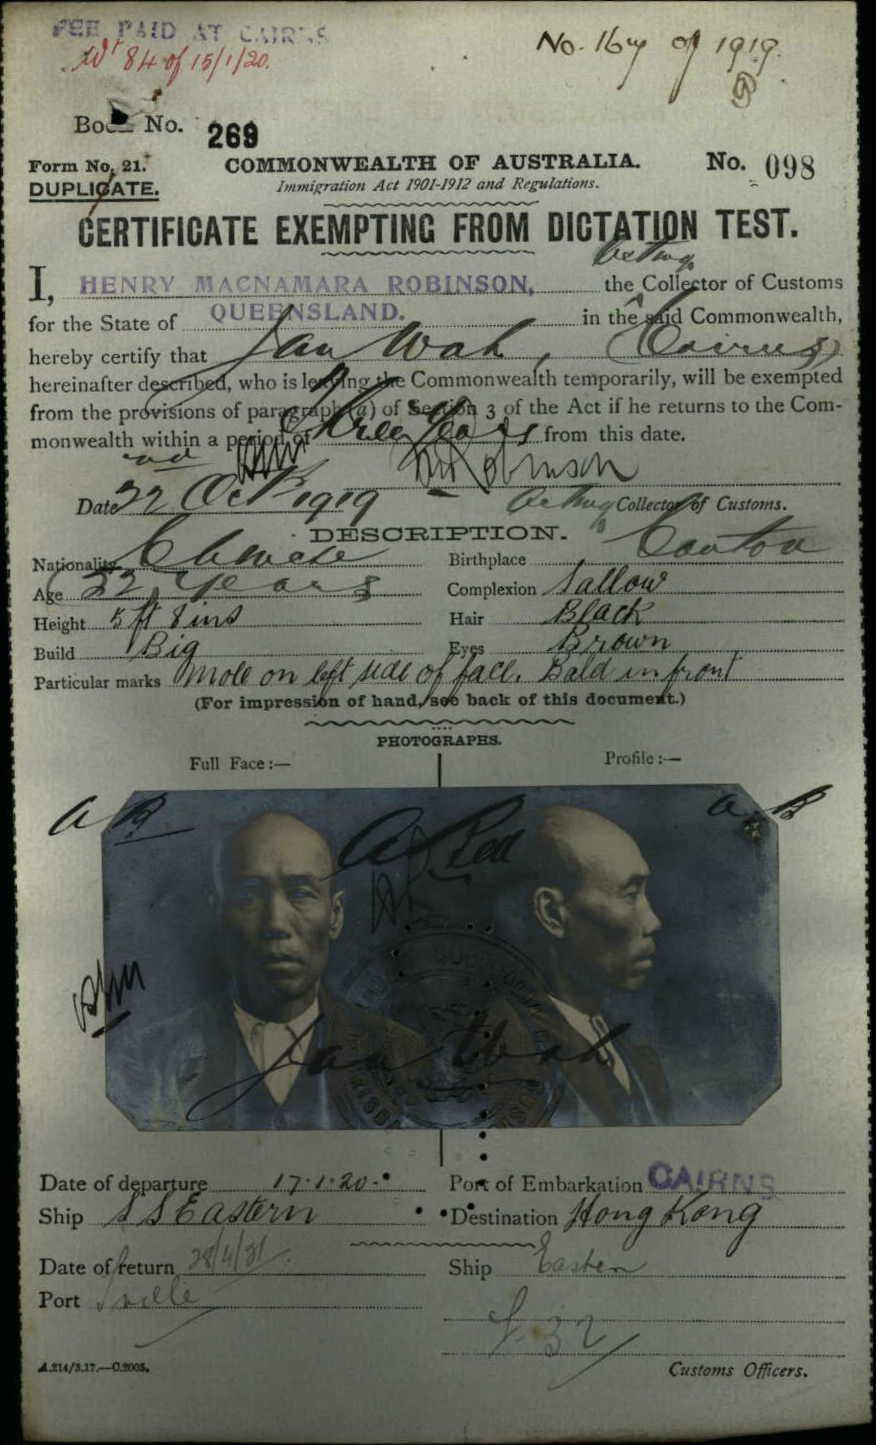 FEE PAID AT CAIRNS
No. 167 of 1919.
Wt 84 of 15/1/20.
Book No. 269
Form No. 21.
COMMONWEALTH OF AUSTRALIA.
No. 098
DUPLICATE.
Immigration Act 1901-1912 and Regulations.
CERTIFICATE EXEMPTING FROM DICTATION TEST.
Acting
I, HENRY MACNAMARA ROBINSON, the Collector of Customs
for the State of QUEENSLAND. in the said Commonwealth,
hereby certify that Jan Wah, (Cairns)
hereinafter described, who is leaving the Commonwealth temporarily, will be exempted
from the provisions of paragraph (a) of Section 3 of the Act if he returns to the Com-
monwealth within a period of Three Years from this date.
HM Robinson
Date 22nd Oct 1919
Acting Collector of Customs.
DESCRIPTION.
Nationality Chinese Birthplace Canton
Age 52 years Complexion Sallow
Height 5 ft 8 ins Hair Black
Build Big Eyes Brown
Particular marks Mole on left side of face. Bald in front
(For impression of hand, see back of this document.)
PHOTOGRAPHS.
Full Face:— Profile:—
Jan Wah
Date of departure 17.1.20. Port of Embarkation CAIRNS
Ship SS Eastern Destination Hong Kong
Date of return 28/4/21. Ship Eastern
Port T'ville
A.214/3.17.—C.2005.
Customs Officers.